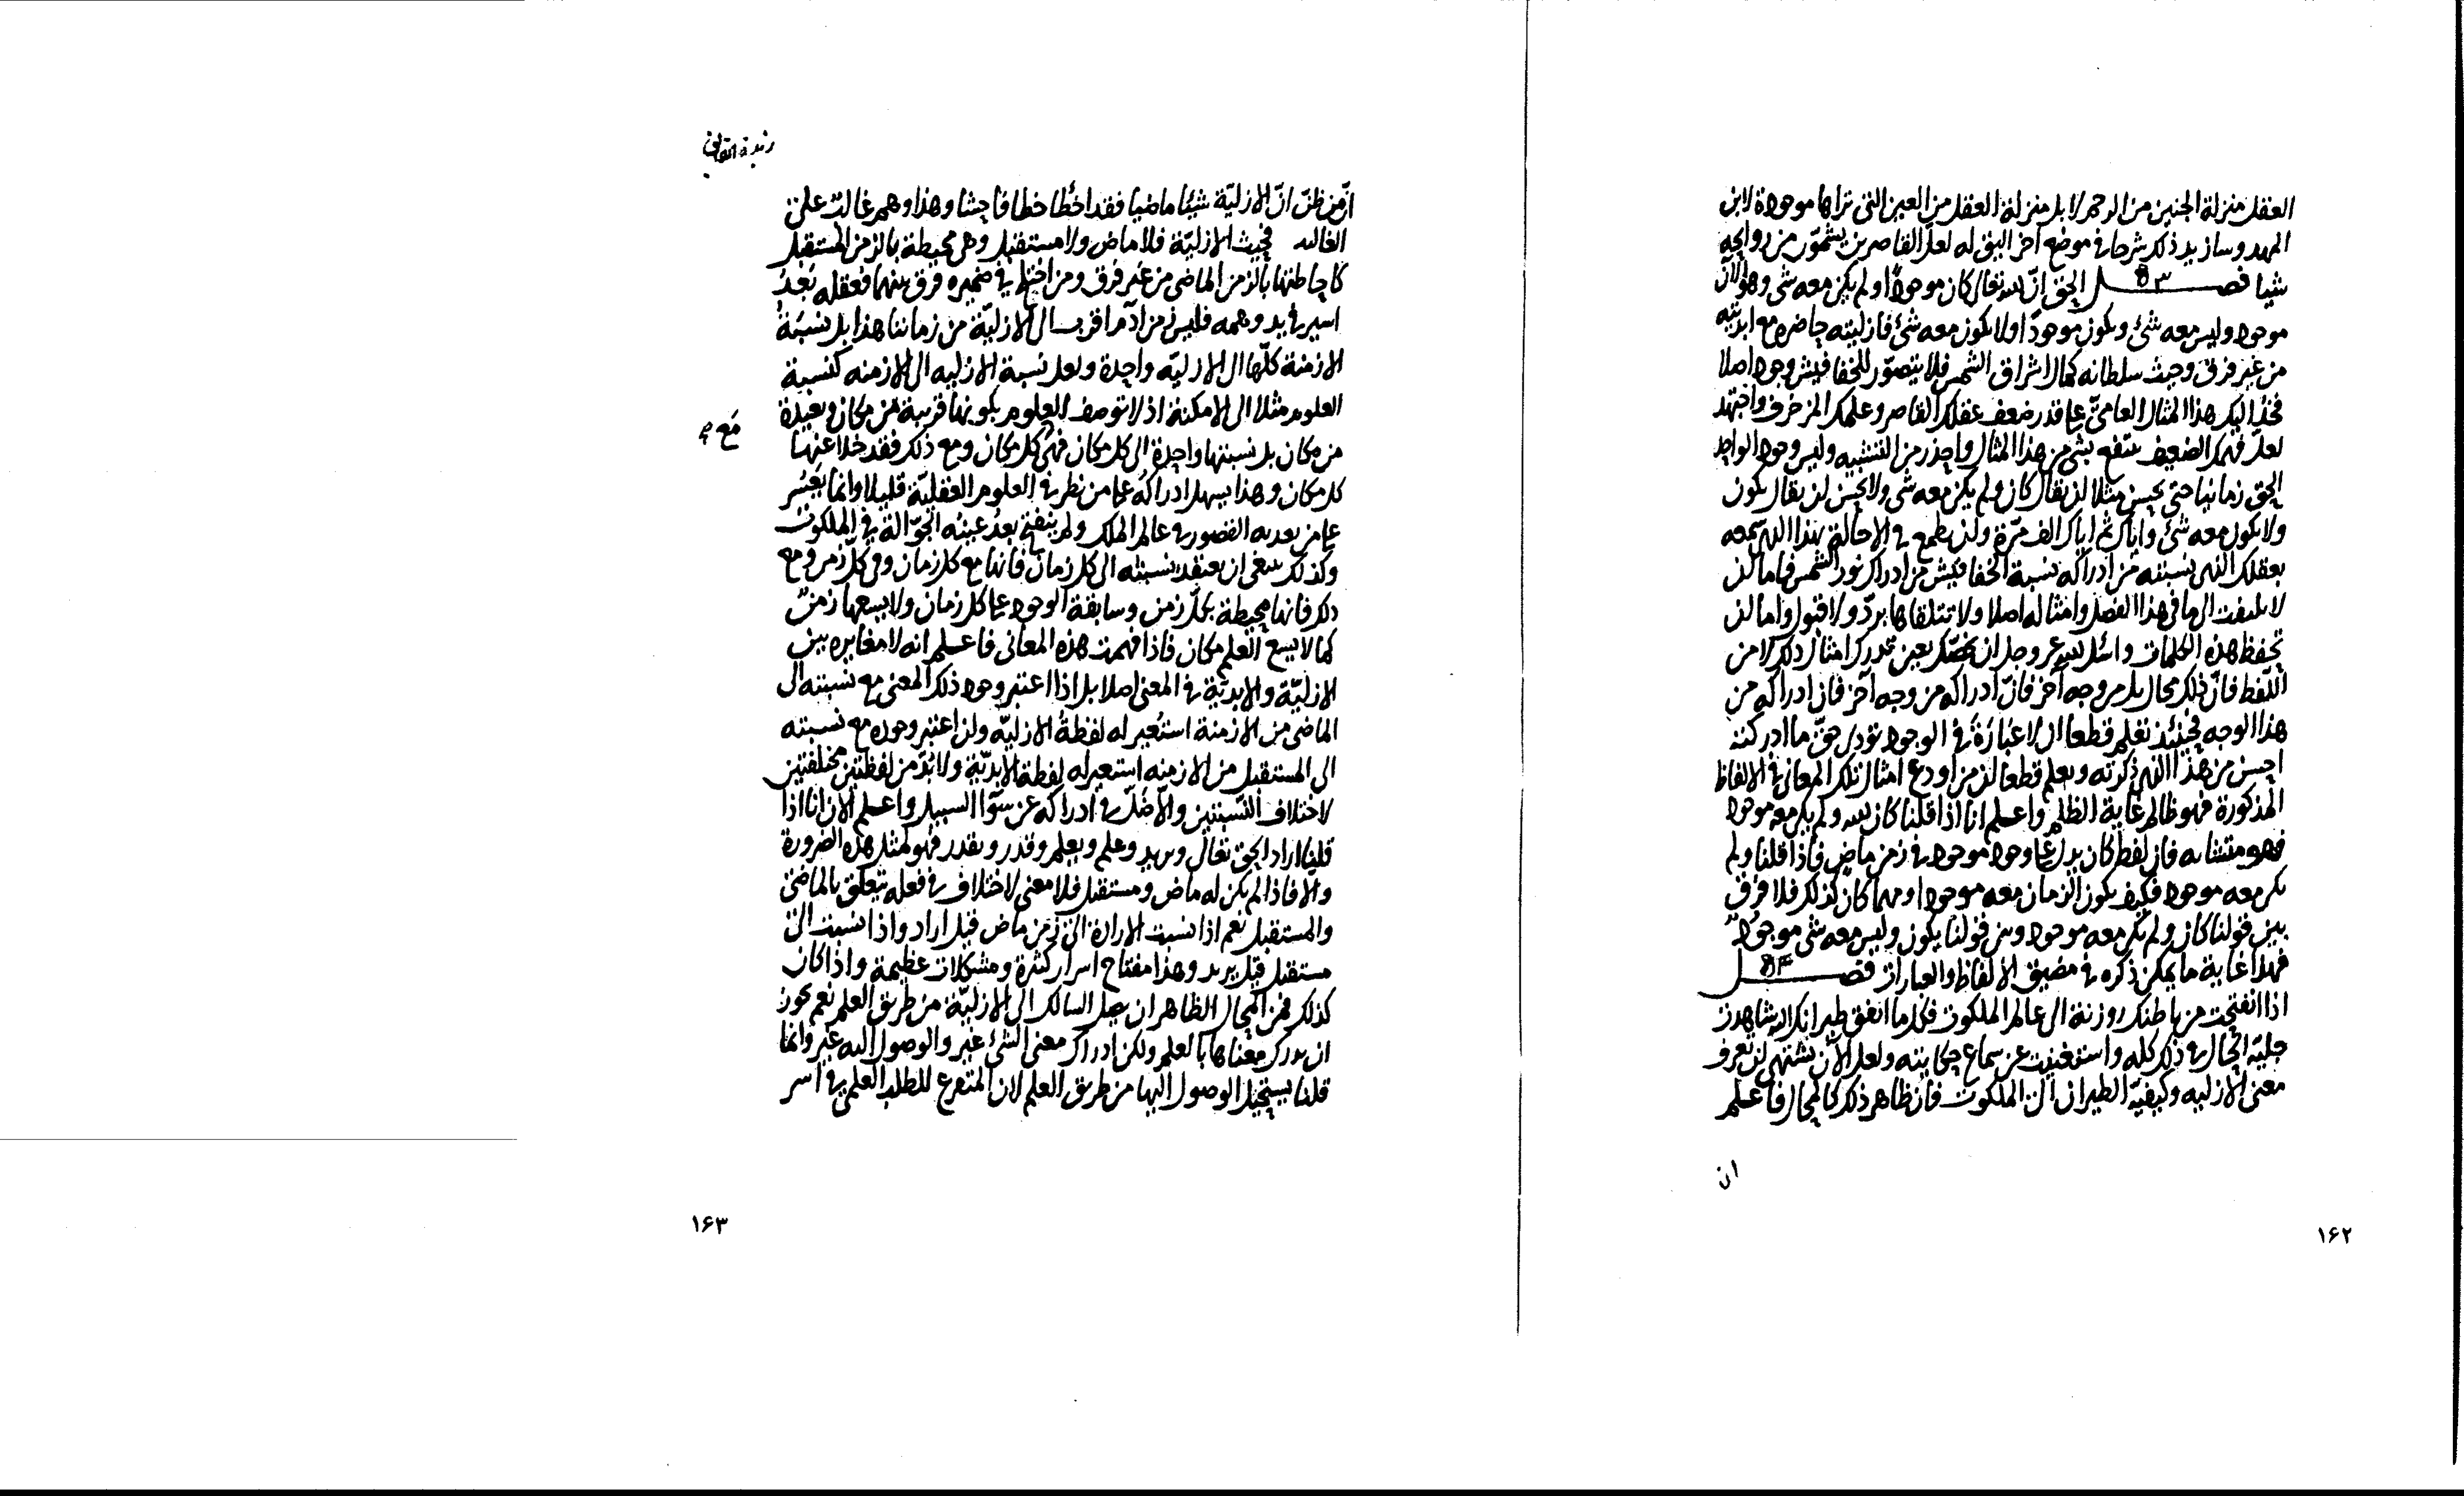 العقل منزلة الجنين من الرحم لا بل منزلة العقل من العين التي تراها موجودة لابن
المهد وسازيد ذلك شرحا في موضع آخر اليق له لعل القاصرين يشمون من روايحه
شيا فصل ٥٣ الحق ان الله تعالى كان موجودا ولم يكن معه شئ وهو الآن
موجود وليس معه شئ ويكون موجودا ولا يكون معه شئ فازليته حاضرة مع ابديته
من غير فرق وحيث سلطانه كمال اشراق الشمس فلا يتصور للخفافيش وجود اصلا
فخذ اليك هذا المثال العامي على قدر ضعف عقلك القاصر وعلمك المزخرف واجتهد
لعل فهمك الضعيف ينتفع بشئ من هذا المثال واحذر من التشبيه وليس وجود الواحد
الحق زمانيا حتى يحسن مثلا ان يقال كان ولم يكن معه شئ ولا يحسن ان يقال يكون
ولا يكون معه شئ واياك ثم اياك الف مرة وان يطمع في الاحاطة بهذا الذي تسمعه
بعقلك الذي نسبته من ادراكه نسبة الخفافيش من ادراك نور الشمس فاما ان
لا تلتفت الى ما في هذا الفصل وامثاله اصلا ولا تتلقاها برد ولا قبول واما ان
تحفظ هذه الكلمات واسئل الله عز وجل ان يخصك بعين تدرك امثال ذلك لا من
اللفظ فان ذلك محال بل من وجه آخر فان ادراكه من وجه آخر فان ادراكه من
هذا الوجه فحينئذ تعلم قطعا ان لا عبارة في الوجود تؤدي حق ما ادركته
احسن من هذا الذي ذكرته وتعلم قطعا ان من اودع امثال تلك المعاني في الالفاظ
المذكورة فهو ظالم غاية الظلم واعلم انا اذا قلنا كان الله ولم يكن معه موجود
فهو متشابه فان لفظ كان يدل على وجود موجود في زمن ماض فاذا قلنا ولم
يكن معه موجود فكيف يكون الزمان معه موجودا ومهما كان كذلك فلا فرق
بين قولنا كان ولم يكن معه موجود وبين قولنا يكون وليس معه شئ موجود
فهذا غاية ما يمكن ذكره في مضيق الالفاظ والعبارات فصل ٥٤
اذا انفتحت من باطنك روزنة الى عالم الملكوت فكل ما اتفق طيرانك اليه شاهدت
جلية الحال في ذلك كله واستغنيت عن سماع حكايته ولعل الآن تشتهي ان تعرف
معنى الازلية وكيفية الطيران الى الملكوت فان ظاهر ذلك كالمحال فاعلم
ان
١۶٢
زبدة الحقايق
ان من ظن ان الازلية شيئا ماضيا فقد اخطا خطا فاحشا وهذا وهم غالب على
الغالب فحيث الازلية فلا ماض ولا مستقبل وهي محيطة بالزمن المستقبل
كاحاطتها بالزمن الماضي من غير فرق ومن اختلج في ضميره فرق بينهما فعقله بعد
اسير في يد وهمه فليس زمن آدم اقرب الى الازلية من زماننا هذا بل نسبة
الازمنة كلها الى الازلية واحدة ولعل نسبة الازلية الى الازمنه كنسبة
العلوم مثلا الى الامكنة اذ لا توصف العلوم بكونها قريبة من مكان وبعيدة
من مكان بل نسبتها واحدة الى كل مكان فهي كل مكان ومع ذلك فقد خلا عنها
مع
كل مكان وهذا يسهل ادراكه على من نظر في العلوم العقلية قليلا وانما يعسر
على من بعد به القصور في عالم الملك ولم ينفتح بعد عينه الجوالة في الملكوت
وكذلك ينبغي ان يعتقد نسبته الى كل زمان فانها مع كل زمان وفي كل زمن ومع
ذلك فانها محيطة بكل زمن وسابقة الوجود على كل زمان ولا يسعها زمن
كما لا يسع العلم مكان فاذا فهمت هذه المعاني فاعلم انه لا مغايرة بين
الازلية والابدية في المعنى اصلا بل اذا اعتبر وجود ذلك المعنى مع نسبته الى
الماضي من الازمنة استعير له لفظة الازلية وان اعتبر وجوده مع نسبته
الى المستقبل من الازمنه استعير له لفظة الابدية ولا بد من لفظتين مختلفتين
لاختلاف النسبتين والا ضل في ادراكه عن سوآء السبيل واعلم الان انا اذا
قلنا اراد الحق تعالى ويريد وعلم ويعلم وقدر ويقدر فهو لمثل هذه الضرورة
والا فاذا لم يكن له ماض ومستقبل فلا معنى لاختلاف في فعله يتعلق بالماضي
والمستقبل نعم اذا نسبت الارادة الى زمن ماض قيل اراد واذا نسبت الى
مستقبل قيل يريد وهذا مفتاح اسرار كثيرة ومشكلات عظيمة واذا كان
كذلك فمن المحال الظاهر ان يصل السالك الى الازلية من طريق العلم نعم يجوز
ان يدرك معناها بالعلم ولكن ادراك معنى الشئ غير والوصول اليه غير وانما
قلنا يستحيل الوصول اليها من طريق العلم لان المتفرغ للطلب العلمي في اسر
١۶٣